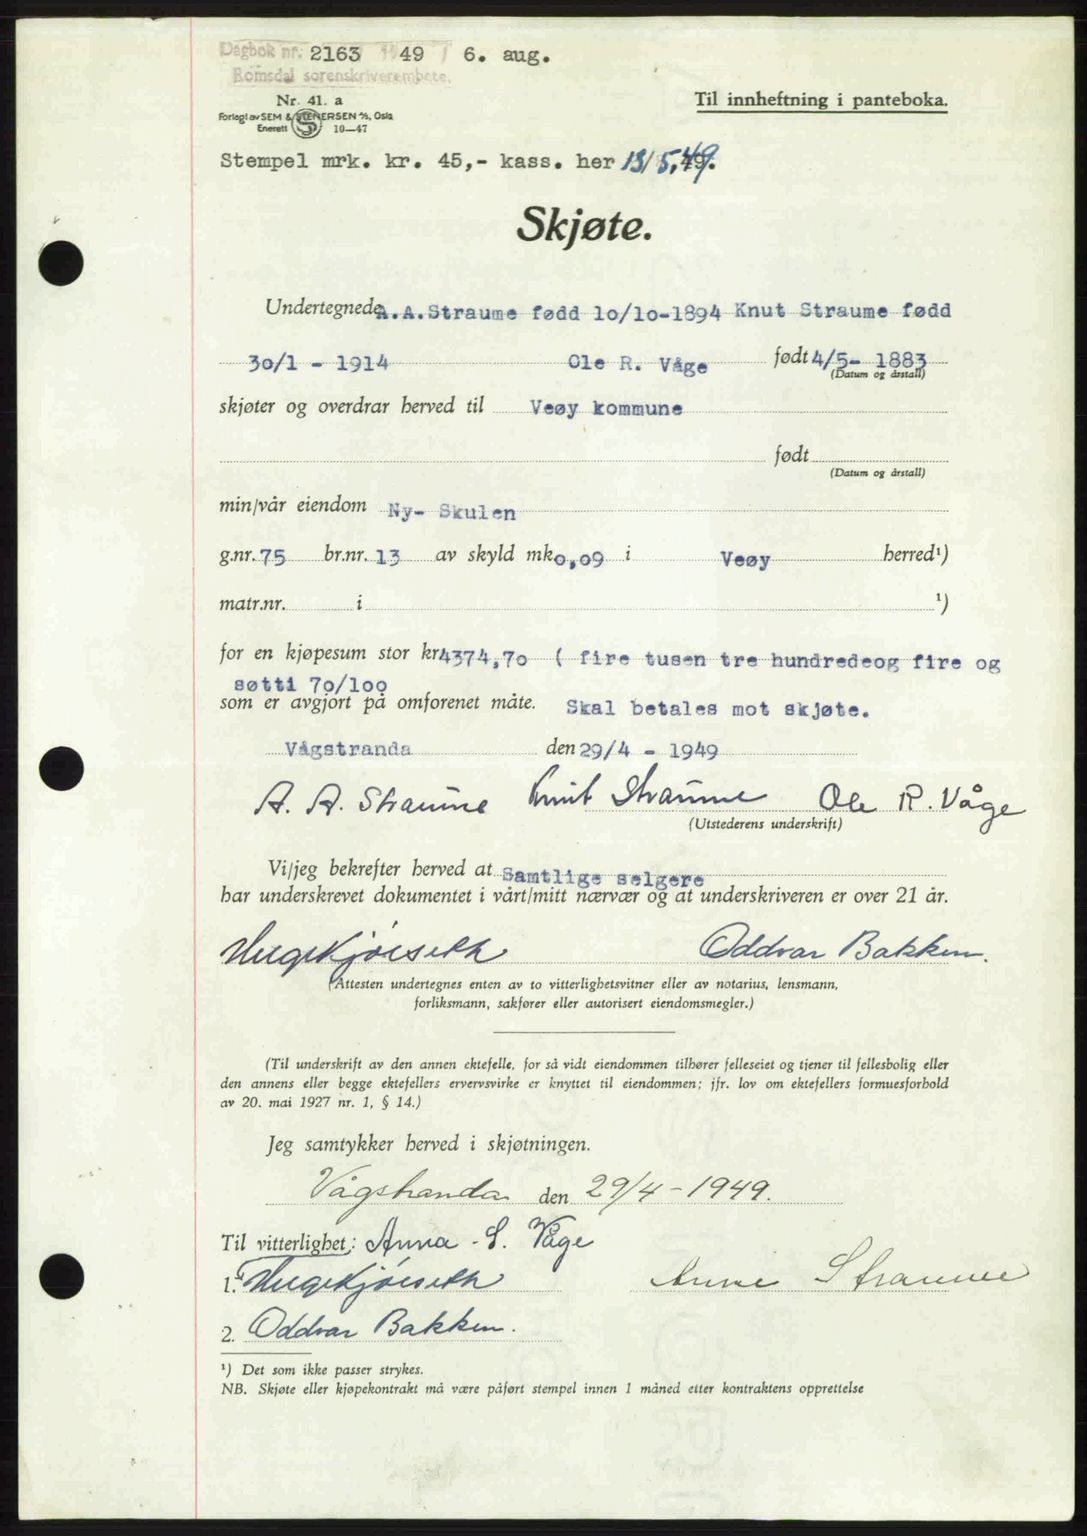 Dagbok nr. 2163 1949 / 6. aug.
Romsdal sorenskriverembete.
Nr. 41. a
Forlagt av SEM & STENERSEN A/S, Oslo
Enerett 10—47
Til innheftning i panteboka.
Stempel mrk. kr. 45,- kass. her 13/5.49.
Skjøte.
Undertegnede A.A.Straume fødd 10/10-1894 Knut Straume fødd
30/1 - 1914 Ole R. Våge født 4/5- 1883
(Datum og årstall)
skjøter og overdrar herved til Veøy kommune
født
(Datum og årstall)
min/vår eiendom Ny- Skulen
g.nr. 75 br.nr. 13 av skyld mk 0,09 i Veøy herred¹)
matr.nr. i ¹)
for en kjøpesum stor kr 4374,70 ( fire tusen tre hundredeog fire og
søtti 70/100
som er avgjort på omforenet måte. Skal betales mot skjøte.
Vågstranda den 29/4 - 1949
A. A. Straume Knut Straume Ole R. Våge
(Utstederens underskrift)
Vi/jeg bekrefter herved at Samtlige selgere
har underskrevet dokumentet i vårt/mitt nærvær og at underskriveren er over 21 år.
Oddvar Bakken.
(Attesten undertegnes enten av to vitterlighetsvitner eller av notarius, lensmann,
forliksmann, sakfører eller autorisert eiendomsmegler.)
(Til underskrift av den annen ektefelle, for så vidt eiendommen tilhører felleseiet og tjener til fellesbolig eller
den annens eller begge ektefellers ervervsvirke er knyttet til eiendommen; jfr. lov om ektefellers formuesforhold
av 20. mai 1927 nr. 1, § 14.)
Jeg samtykker herved i skjøtningen.
Vågstranda den 29/4-1949.
Til vitterlighet: Anna S. Våge
1. Anne Straume
2. Oddvar Bakken.
¹) Det som ikke passer strykes.
NB. Skjøte eller kjøpekontrakt må være påført stempel innen 1 måned etter kontraktens opprettelse